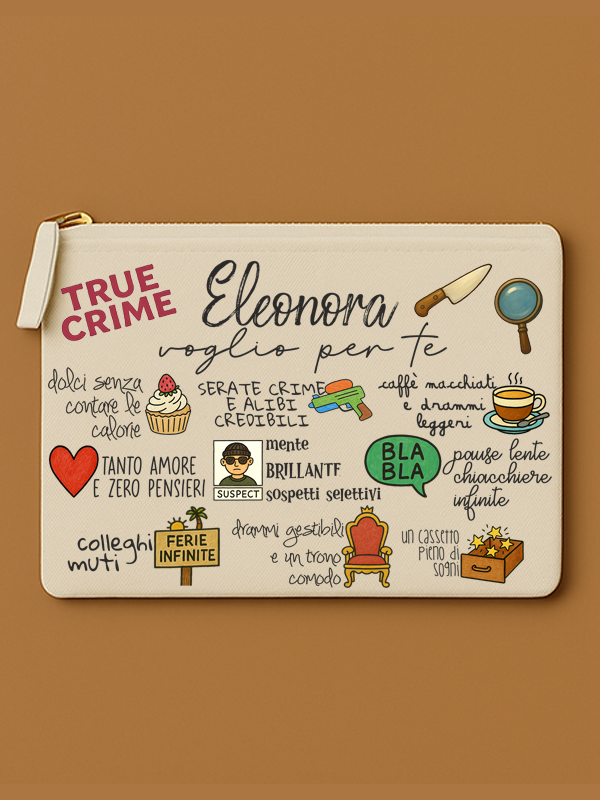 TRUE
CRIME
Eleonora
voglio per te
dolci senza
contare le
calorie
SERATE CRIME
E ALIBI
CREDIBILI
caffè macchiati
e drammi
leggeri
TANTO AMORE
E ZERO PENSIERI
SUSPECT
mente
BRILLANTE
sospetti selettivi
BLA
BLA
pause lente
chiacchiere
infinite
colleghi
muti
FERIE
INFINITE
drammi gestibili
e un trono
comodo
un cassetto
pieno di
sogni